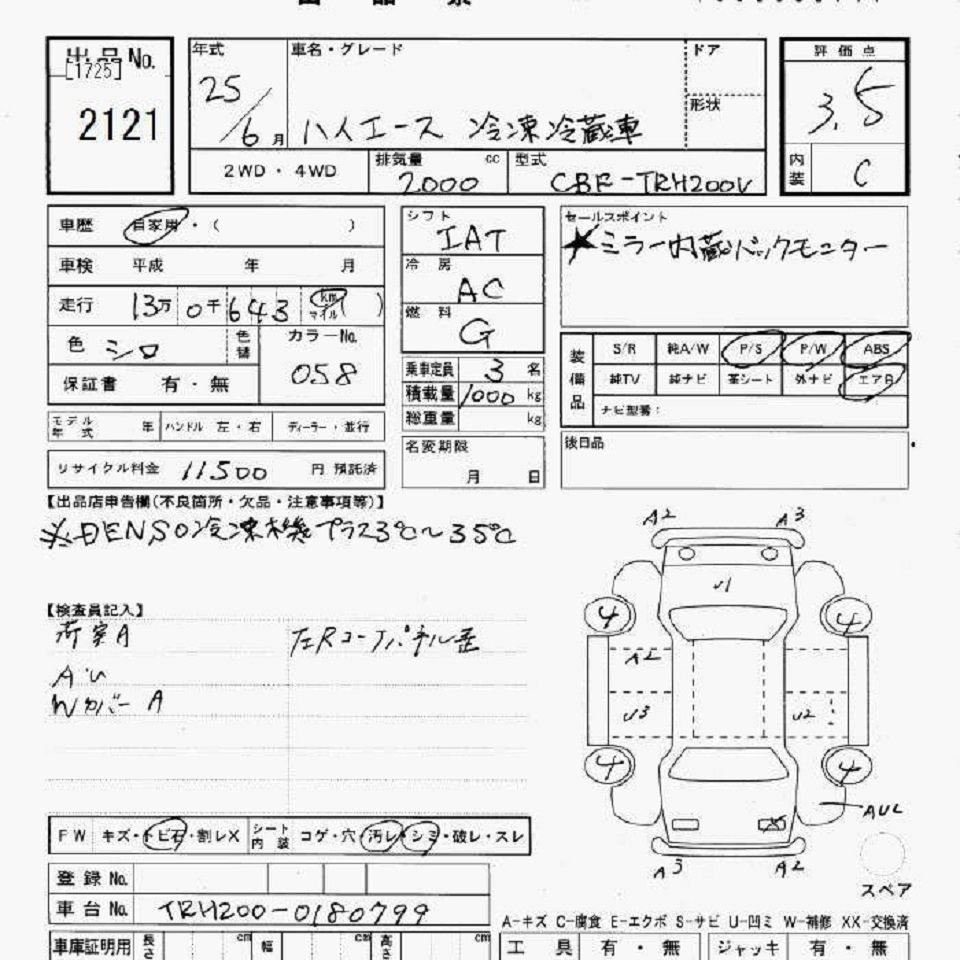 出品No.
[1725]
2121
年式
25/6月
車名・グレード
ハイエース 冷凍冷蔵車
ドア
形状
評価点
3.5
内装
C
2WD・4WD
排気量 cc
2000
型式
CBF-TRH200V
車歴 自家用・( )
車検 平成 年 月
走行 13万0千643 km マイル( )
色 シロ
色替
カラーNo.
058
保証書 有・無
モデル年式 年
ハンドル 左・右
ディーラー・並行
リサイクル料金 11500 円 預託済
シフト
IAT
冷房
AC
燃料
G
乗車定員 3 名
積載量 1000 kg
総重量 kg
名変期限
月 日
セールスポイント
★ミラー内蔵バックモニター
装備品
S/R 純A/W P/S P/W ABS
純TV 純ナビ 革シート 外ナビ エアB
ナビ型番:
後日品
【出品店申告欄(不良箇所・欠品・注意事項等)】
※DENSO冷凍機プラス3℃~35℃
【検査員記入】
荷室A
左Rコーナーパネル歪
A・U
Wカバー A
A2 A3
U1
4 4
A2
U3 U2
4 4
AU2
X
A3 A2
スペア
FW キズ・トビ石・割レX
シート内装 コゲ・穴・汚レ・シミ・破レ・スレ
登録No.
車台No. TRH200-0180799
A-キズ C-腐食 E-エクボ S-サビ U-凹ミ W-補修 XX-交換済
車庫証明用 長さ cm 幅 cm 高さ cm
工具 有・無 ジャッキ 有・無